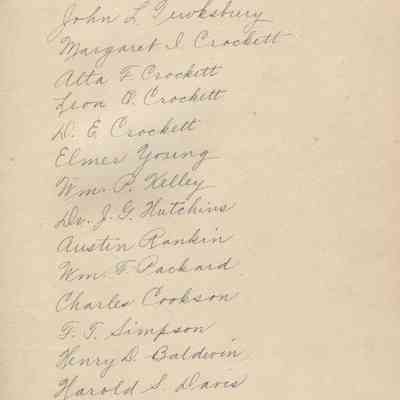 John L Tewksbury
Margaret I Crockett
Alta F Crockett
Leon O. Crockett
D. E Crockett
Elmer Young
Wm. P. Kelley
Dr. J. G. Hutchins
Austin Rankin
Wm F. Packard
Charles Cookson
F. T. Simpson
Henry D. Baldwin
Harold S. Davis